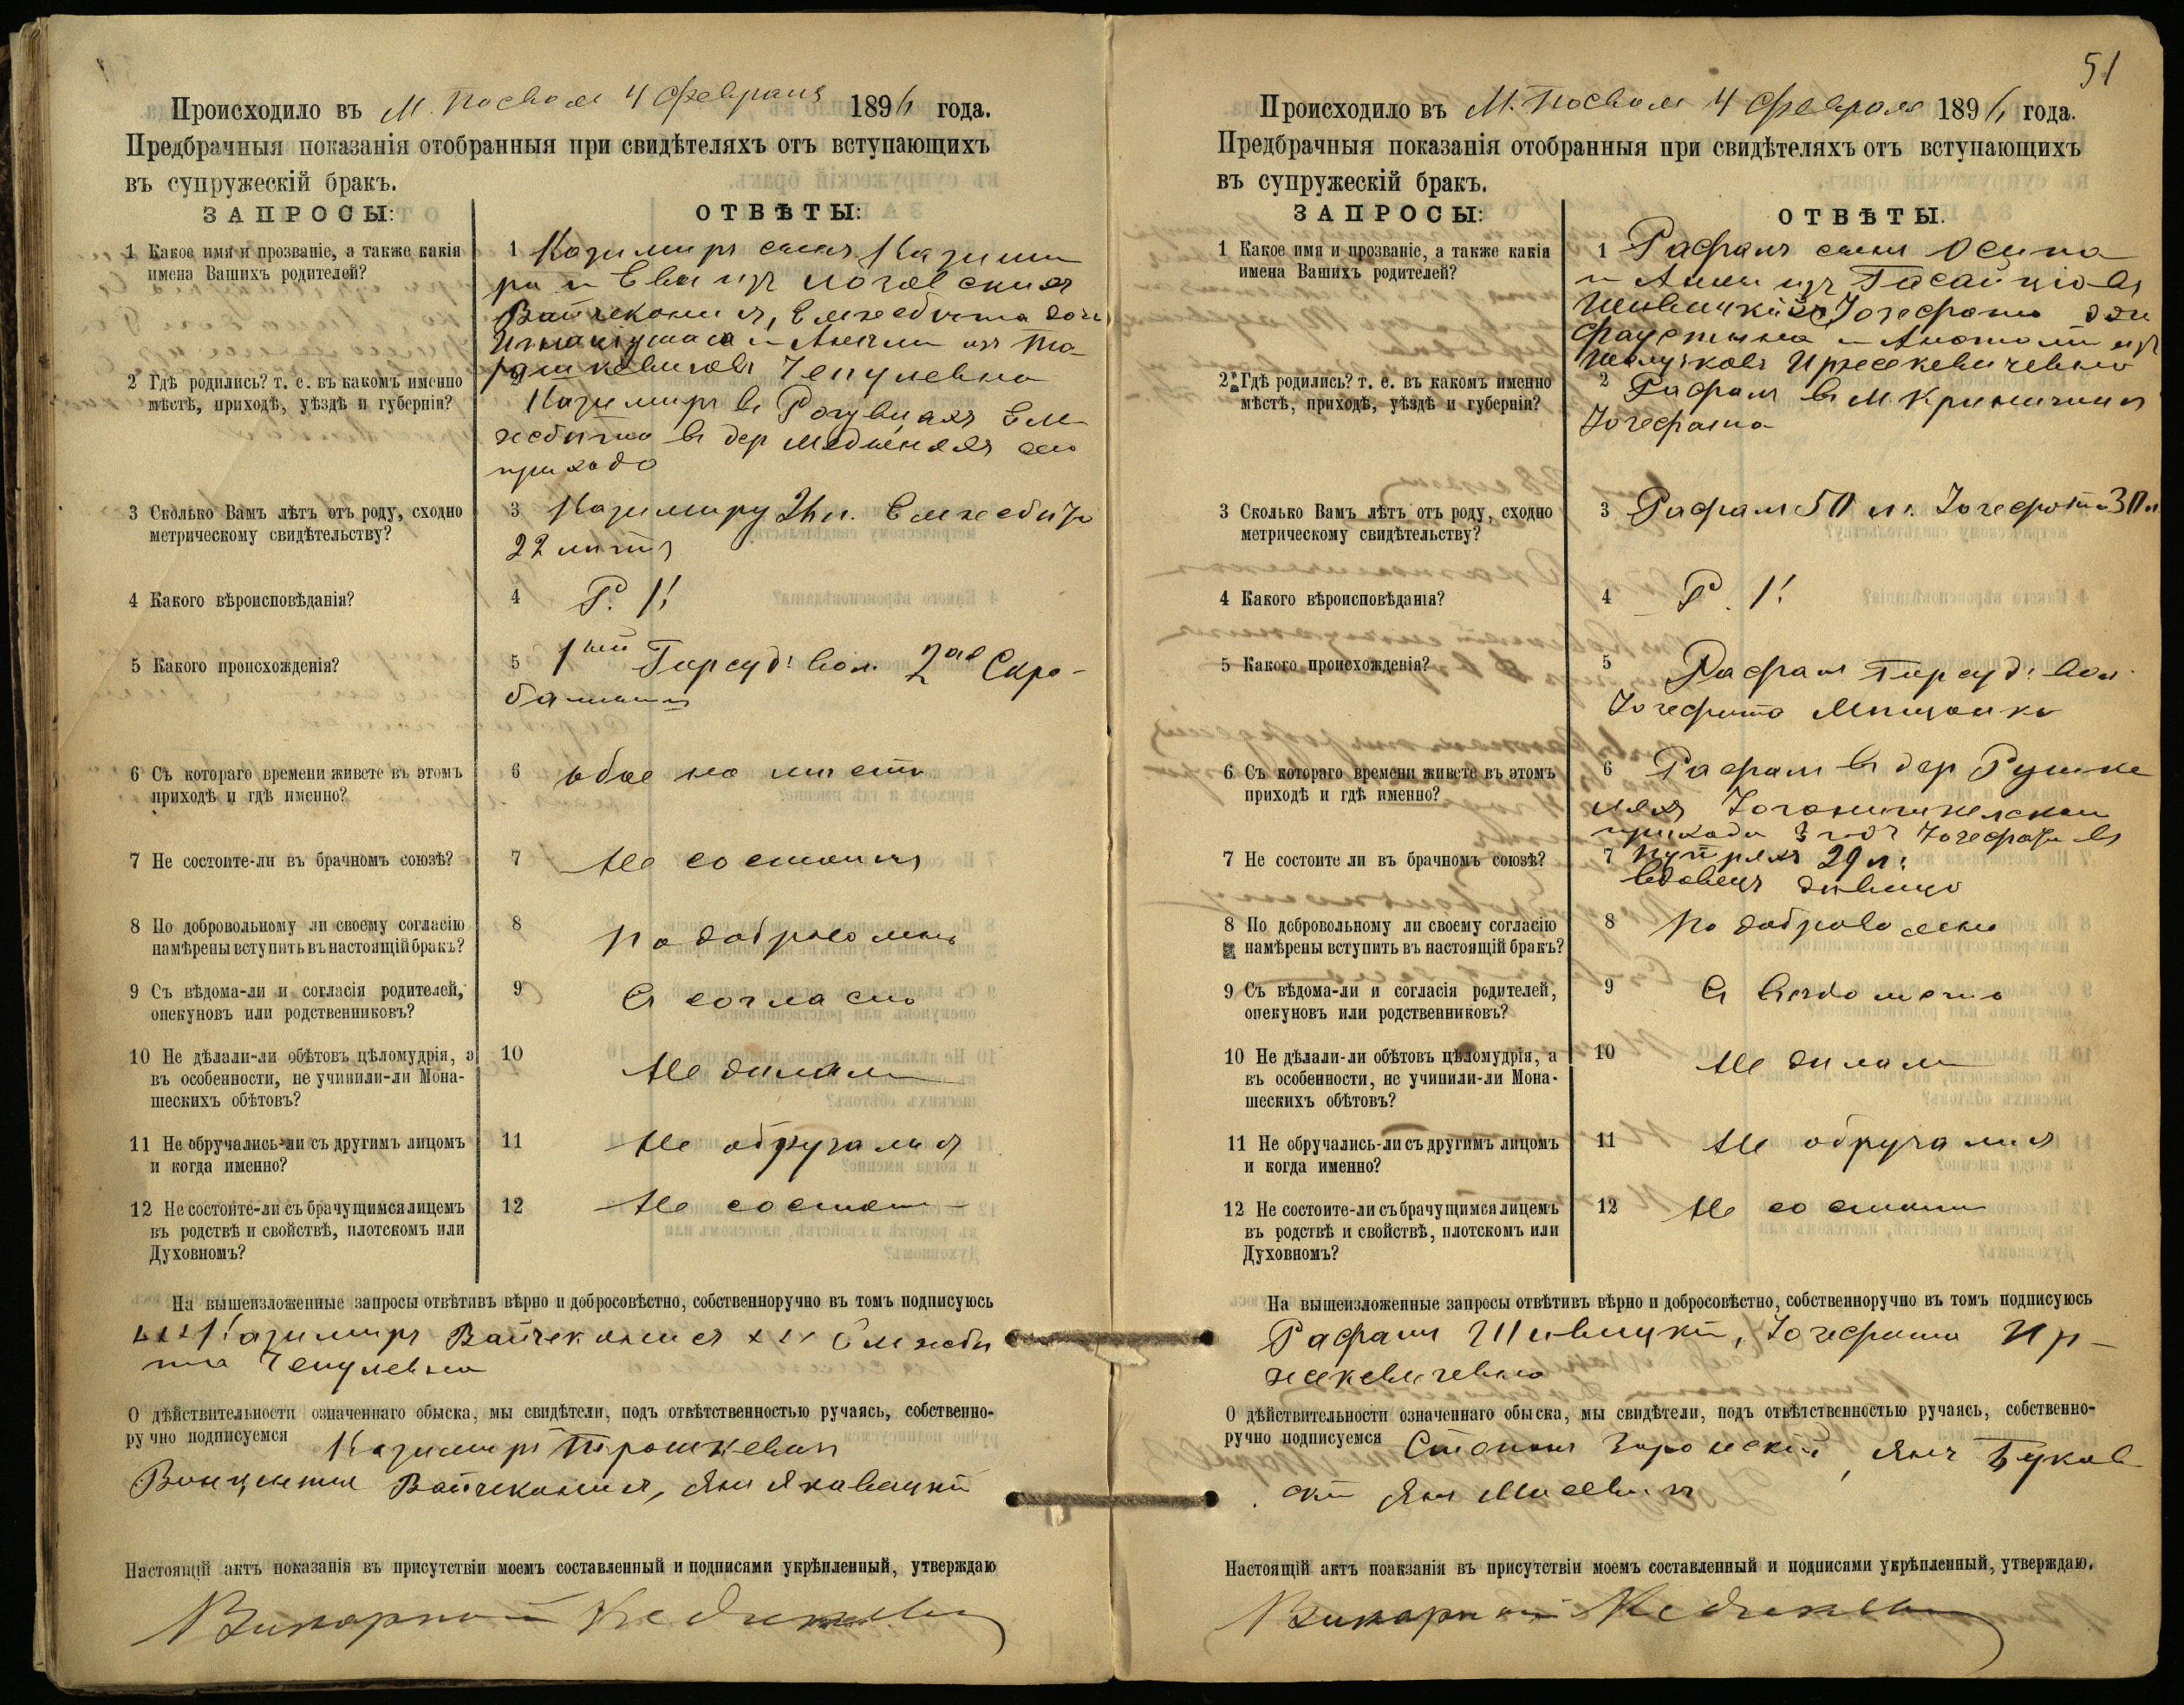 Происходило въ М. Посволе 4 Февраля 1896 года.
Предбрачныя показанія отобранныя при свидѣтеляхъ отъ вступающихъ
въ супружескій бракъ.
ЗАПРОСЫ:
ОТВѢТЫ:
1 Какое имя и прозваніе, а также какія
имена Вашихъ родителей?
1 Казимиръ сынъ Казими
ра и Евы изъ
Вайчеконисъ, Елжебѣта дочь
и Анели изъ То
рашкевичовъ Чепулевна
2 Гдѣ родились? т. е. въ какомъ именно
мѣстѣ, приходѣ, уѣздѣ и губерніи?
Казимиръ въ Ел
жебѣта въ дер
прихода
3 Сколько Вамъ лѣтъ отъ роду, сходно
метрическому свидѣтельству?
3 Казимиру 26 л. Елжебѣта
22 лѣтъ
4 Какого вѣроисповѣданія?
4 Р. К.
5 Какого происхожденія?
5 1ый вол. 2ая Скро-
6 Съ котораго времени живете въ этомъ
приходѣ и гдѣ именно?
6 обое на мѣстѣ
7 Не состоите-ли въ брачномъ союзѣ?
7 Не состоимъ
8 По добровольному ли своему согласію
намѣрены вступить въ настоящій бракъ?
8 По добровольн
9 Съ вѣдома-ли и согласія родителей,
опекуновъ или родственниковъ?
9 Съ согласія
10 Не дѣлали-ли обѣтовъ цѣломудрія, а
въ особенности, не учинили-ли Мона-
шескихъ обѣтовъ?
10 Не дѣлали
11 Не обручались-ли съ другимъ лицомъ
и когда именно?
11 Не обручались
12 Не состоите-ли съ брачущимся лицемъ
въ родствѣ и свойствѣ, плотскомъ или
Духовномъ?
12 Не состоим
На вышеизложенные запросы отвѣтивъ вѣрно и добросовѣстно, собственноручно въ томъ подписуюсь
ххх Казимиръ Вайчеконисъ ххх Елжебѣ
та Чепулевна
О дѣйствительности означеннаго обыска, мы свидѣтели, подъ отвѣтственностью ручаясь, собственно-
ручно подписуемся Казимиръ Трошкевич
Винцентій Вайчеконисъ, Янъ Яковицкій
Настоящій актъ показанія въ присутствіи моемъ составленный и подписями укрѣпленный, утверждаю
Викарный
51
Происходило въ М. Посволе 4 Февраля 1896 года.
Предбрачныя показанія отобранныя при свидѣтеляхъ отъ вступающихъ
въ супружескій бракъ.
ЗАПРОСЫ:
ОТВѢТЫ.
1 Какое имя и прозваніе, а также какія
имена Вашихъ родителей?
1 Рафалъ сынъ Осипа
и Анны изъ
Шивицкій, Іозефата дочь
Фаустына и Анатоліи изъ
Иржекевичевна
2 Гдѣ родились? т. е. въ какомъ именно
мѣстѣ, приходѣ, уѣздѣ и губерніи?
2 Рафалъ въ М. Криничинъ
Іозефата
3 Сколько Вамъ лѣтъ отъ роду, сходно
метрическому свидѣтельству?
3 Рафалъ 50 л. Іозефата 30 л.
4 Какого вѣроисповѣданія?
4 Р. К.
5 Какого происхожденія?
5 Рафалъ вол.
Іозефата Мѣщанка
6 Съ котораго времени живете въ этомъ
приходѣ и гдѣ именно?
6 Рафалъ въ дер
прихода 3 год Іозефата въ
7 Не состоите ли въ брачномъ союзѣ?
7 29 л.
вдовецъ дѣвица
8 По добровольному ли своему согласію
намѣрены вступить въ настоящій бракъ?
8 По добровольно
9 Съ вѣдома-ли и согласія родителей,
опекуновъ или родственниковъ?
9 Съ
10 Не дѣлали-ли обѣтовъ цѣломудрія, а
въ особенности, не учинили-ли Мона-
шескихъ обѣтовъ?
10 Не дѣлали
11 Не обручались-ли съ другимъ лицомъ
и когда именно?
11 Не обручались
12 Не состоите-ли съ брачущимся лицемъ
въ родствѣ и свойствѣ, плотскомъ или
Духовномъ?
12 Не состоимъ
На вышеизложенные запросы отвѣтивъ вѣрно и добросовѣстно, собственноручно въ томъ подписуюсь
Рафалъ Шивицкій, Іозефата Ир-
жекевичевна
О дѣйствительности означеннаго обыска, мы свидѣтели, подъ отвѣтственностью ручаясь, собственно-
ручно подписуемся Степанъ Янъ Буков
скій Янъ Мисевичъ
Настоящій актъ поакзанія въ присутствіи моемъ составленный и подписями укрѣпленный, утверждаю.
Викарный